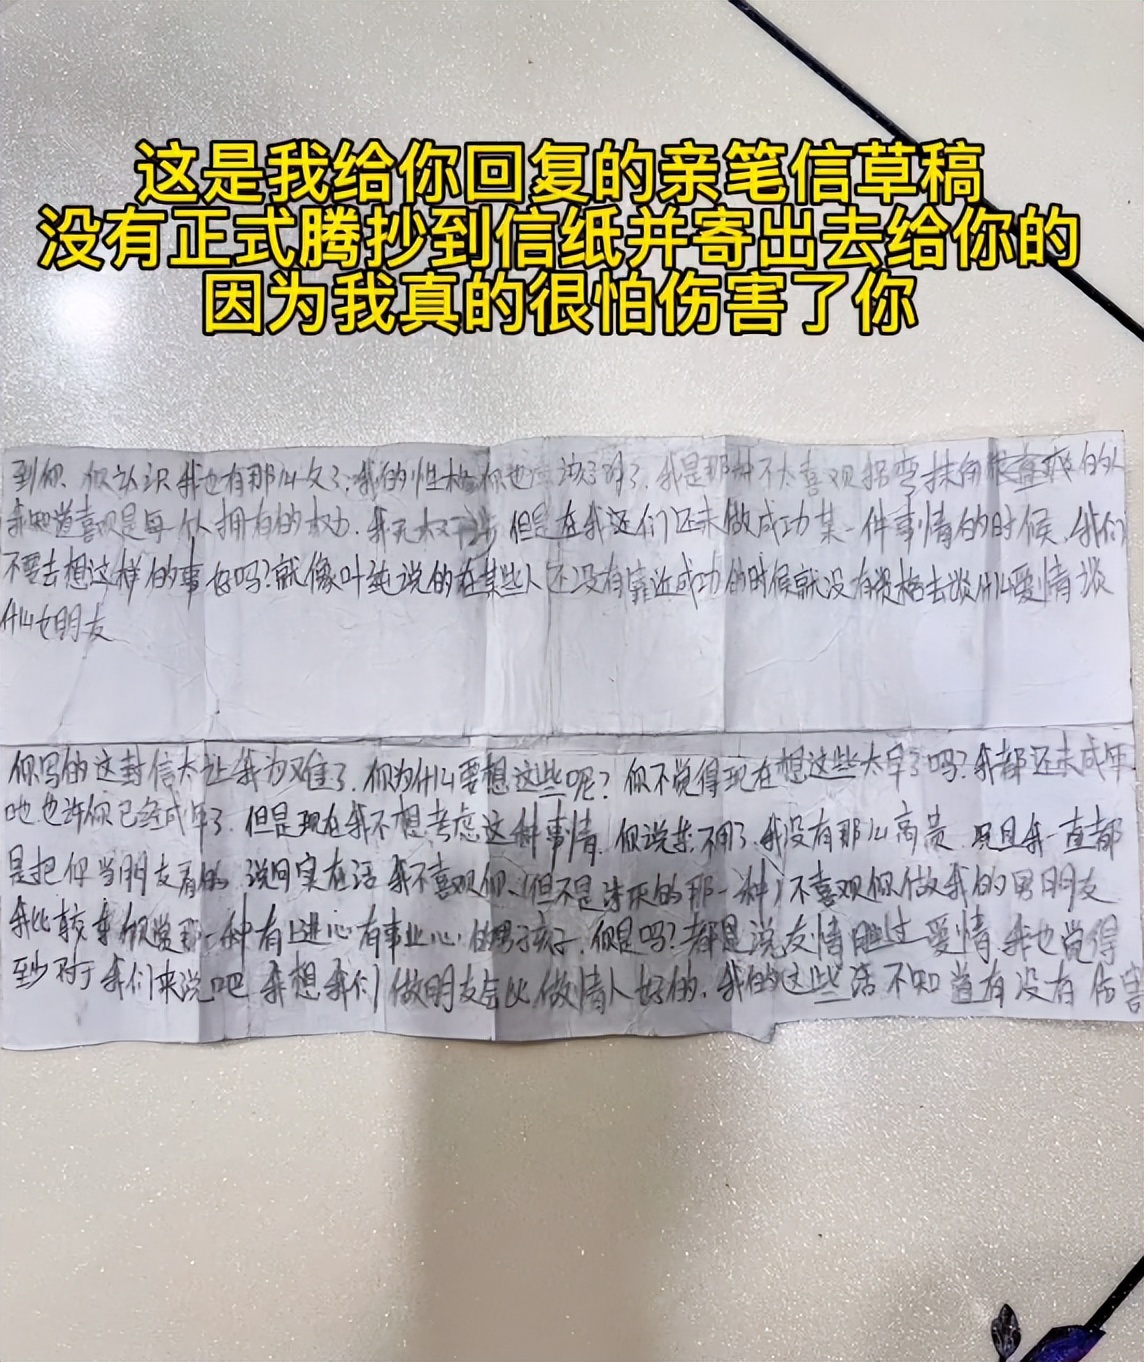 这是我给你回复的亲笔信草稿
没有正式腾抄到信纸并寄出去给你的
因为我真的很怕伤害了你
到你、你认识我也有那么久了，我的性格你也应该了解了，我是那种不太喜欢拐弯抹角很直爽的人
我知道喜欢是每个人拥有的权力，我无权干涉 但是在我还们还未做成功某一件事情的时候，我们
不要去想这样的事好吗？就像叶纯说的在某些人还没有靠近成功的时候就没有资格去谈什么爱情谈
什么女朋友
你写的这封信太让我为难了，你为什么要想这些呢？你不觉得现在想这些太早了吗？我都还未成年
吔也许你已经成年了，但是现在我不想考虑这种事情，你说 不用了，我没有那么高贵 况且我一直都
是把你当朋友看的，说回实在话 我不喜欢你、（但不是 的那一种）不喜欢你做我的男朋友
我比较 欣赏那一种有上进心有事业心的男孩子，你是吗？都是说友情胜过爱情，我也觉得
至少对于我们来说吧，我想我们做朋友会比做情人好的，我的这些话不知道有没有伤害